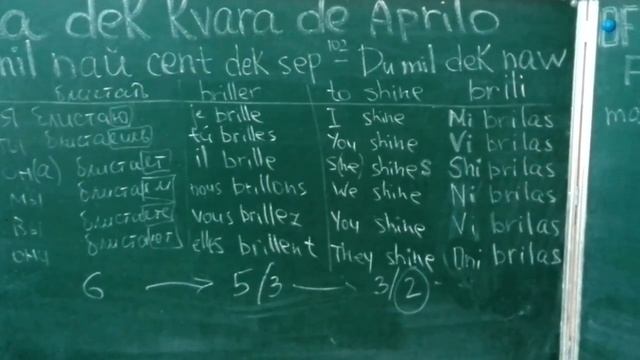 a dek Kvara de Aprilo
mil naŭ cent dek sep 102 Du mil dek naw
блистать briller to shine brili
Я блистаю je brille I shine Mi brilas
Ты блистаешь tu brilles You shine Vi brilas
он(а) блистает il brille s(he) shines Shi brilas
мы блистаем nous brillons We shine Ni brilas
Вы блистаете vous brillez You shine Vi brilas
они блистают elles brillent They shine Oni brilas
6 → 5/3 — 3/2